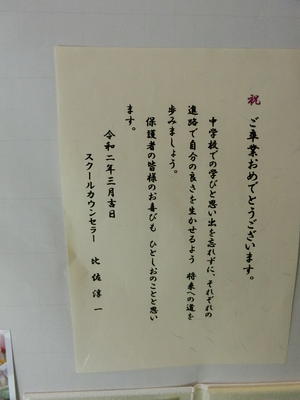 祝 ご卒業おめでとうございます。
中学校での学びと思い出を忘れずに、それぞれの
進路で自分の良さを生かせるよう 将来への道を
歩みましょう。
保護者の皆様のお喜びも ひとしおのことと思い
ます。
令和二年三月吉日
スクールカウンセラー 比佐淳一